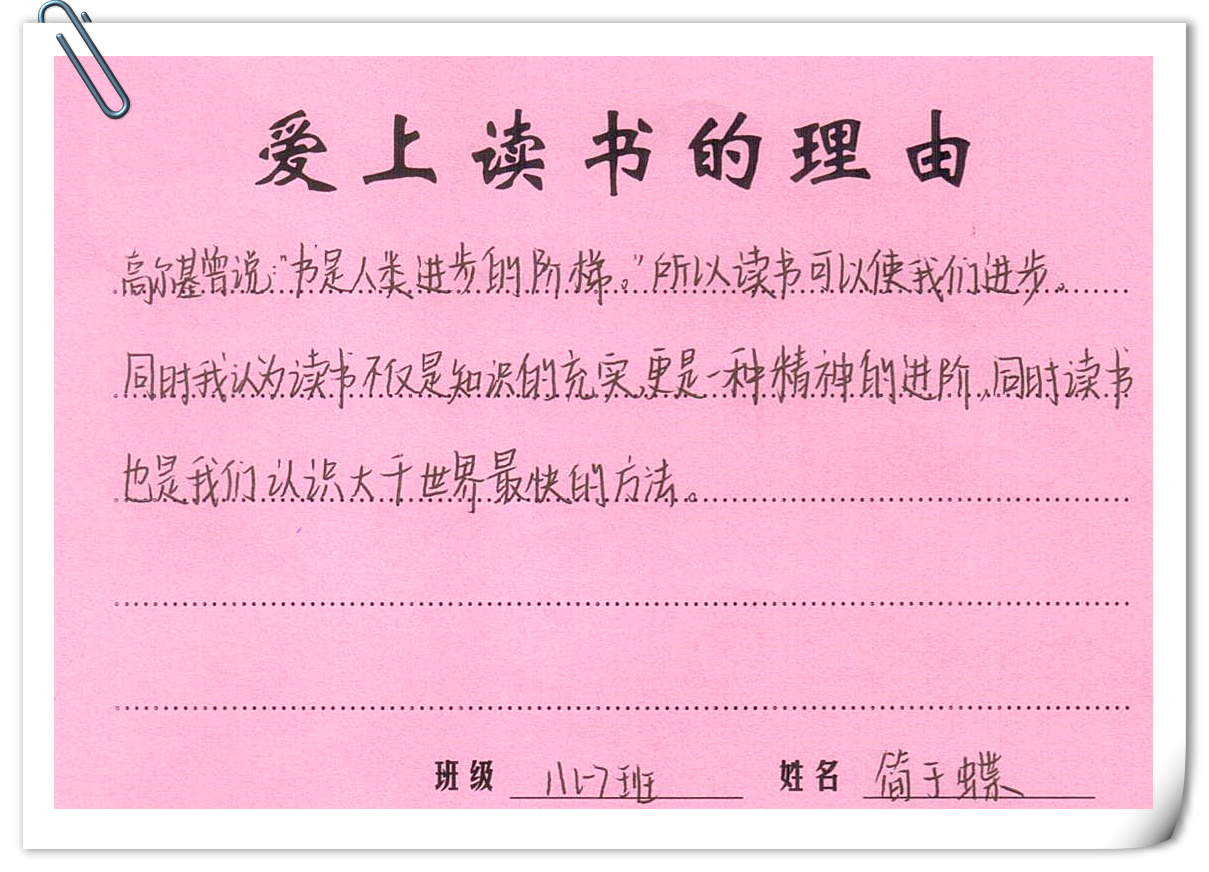 爱上读书的理由
高尔基曾说:"书是人类进步的阶梯。"所以读书可以使我们进步。
同时我认为读书不仅是知识的充实,更是一种精神的进阶,同时读书
也是我们认识大千世界最快的方法。
班级 班 姓名 简于蝶